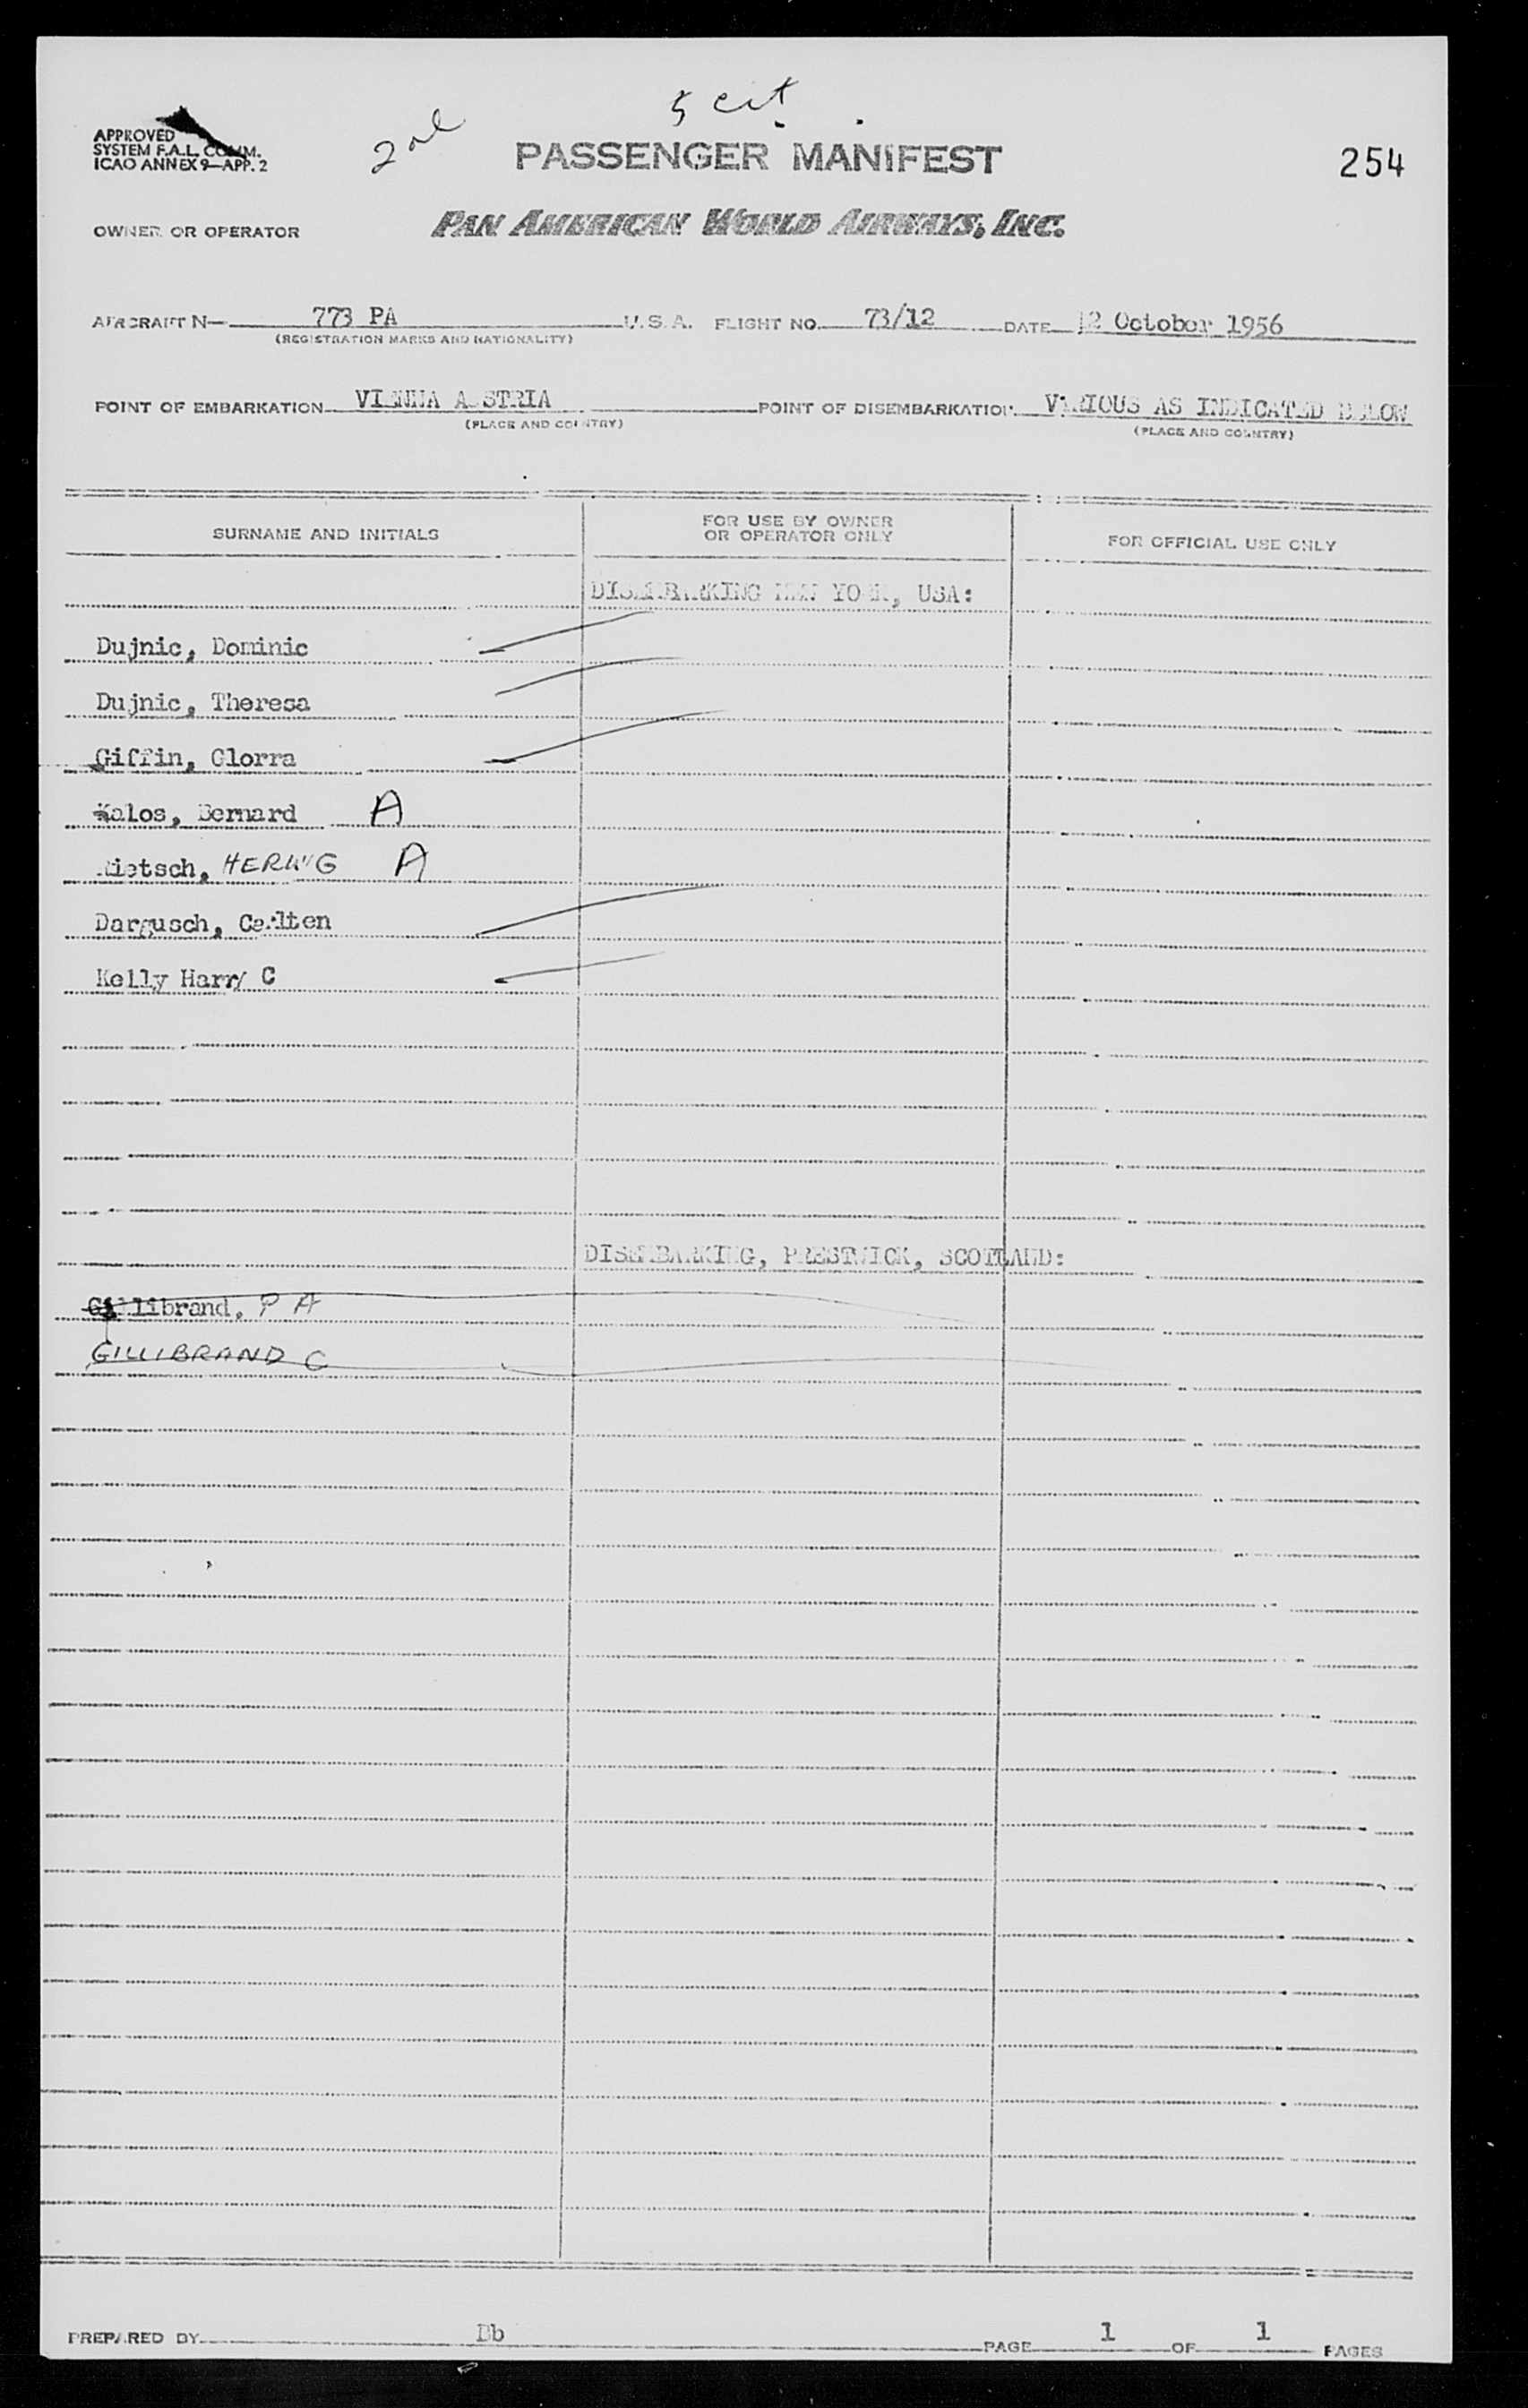 5 cit
2 al
APPROVED
SYSTEM F.A.L. COMM.
ICAO ANNEX 9—APP. 2
PASSENGER MANIFEST
254
OWNER OR OPERATOR
PAN AMERICAN WORLD AIRWAYS, INC.
AIRCRAFT N— 773 PA U.S.A. FLIGHT NO. 73/12 DATE 12 October 1956
(REGISTRATION MARKS AND NATIONALITY)
POINT OF EMBARKATION VIENNA A STRIA POINT OF DISEMBARKATION VARIOUS AS INDICATED BELOW
(PLACE AND COUNTRY) (PLACE AND COUNTRY)
SURNAME AND INITIALS
FOR USE BY OWNER
OR OPERATOR ONLY
FOR OFFICIAL USE ONLY
DISEMBARKING NEW YORK, USA:
Dujnic, Dominic
Dujnic, Theresa
Giffin, Glorra
Kalos, Bernard A
HERWIG A
Dargusch, Carlten
Kelly Harry C
DISEMBARKING, PRESTWICK, SCOTLAND:
Gillibrand, P A
GILLIBRAND C
PREPARED BY Db PAGE 1 OF 1 PAGES